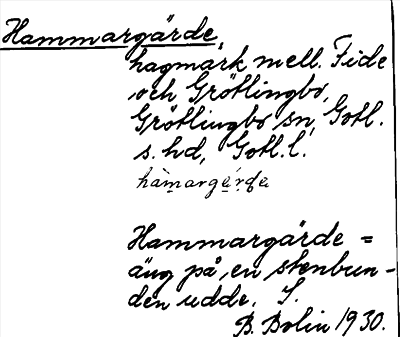 Hammargärde,
hagmark mell. Fide
och Grötlingbo,
Grötlingbo sn, Gotl.
s. hd, Gotl. l.
hàmargę́rdɐ
Hammargärde =
äng på en stenbun-
den udde. S.
B. Bolin 1930.